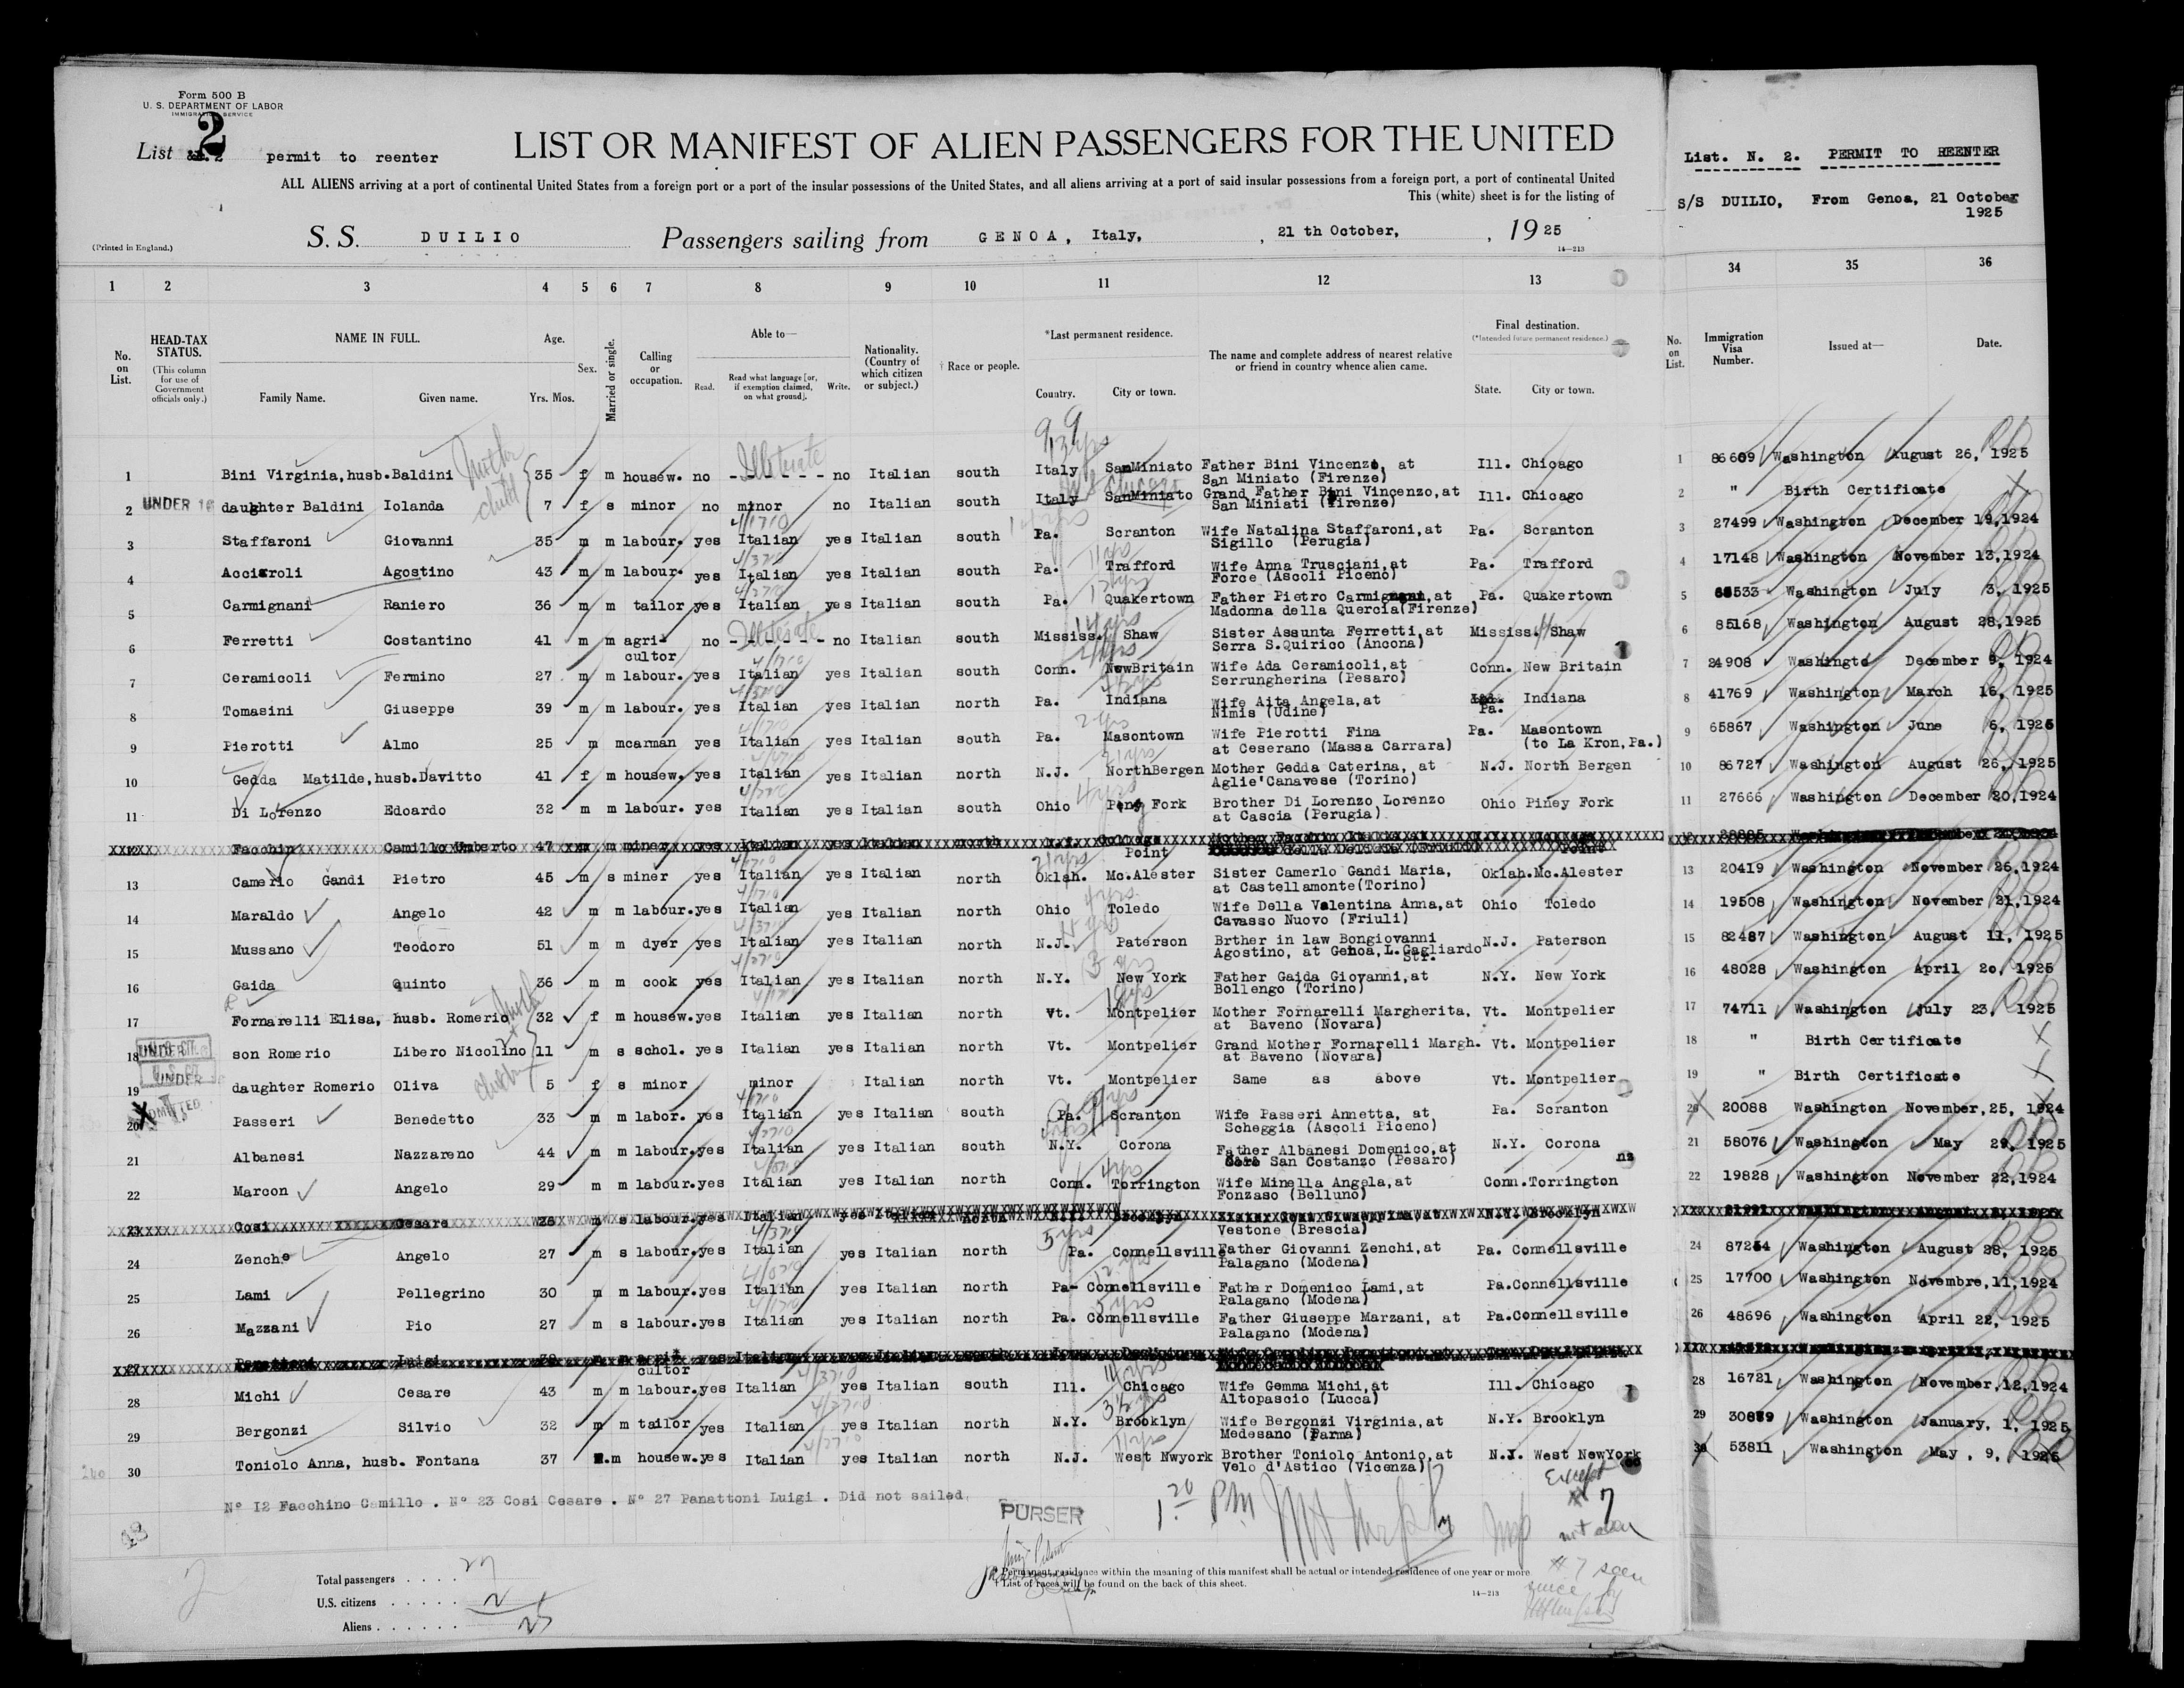 Form 500 B
U. S. DEPARTMENT OF LABOR
IMMIGRATION SERVICE
2
List permit to reenter
LIST OR MANIFEST OF ALIEN PASSENGERS FOR THE UNITED
ALL ALIENS arriving at a port of continental United States from a foreign port or a port of the insular possessions of the United States, and all aliens arriving at a port of said insular possessions from a foreign port, a port of continental United
This (white) sheet is for the listing of
(Printed in England.)
S. S. DUILIO Passengers sailing from GENOA, Italy, , 21 th October, , 1925
14—213
List. N. 2. PERMIT TO REENTER
S/S DUILIO, From Genoa, 21 October
1925
1 2 3 4 5 6 7 8 9 10 11 12 13 34 35 36
No. on List.
HEAD-TAX STATUS.
(This column for use of Government officials only.)
NAME IN FULL.
Family Name. Given name.
Age.
Yrs. Mos.
Sex.
Married or single.
Calling or occupation.
Able to—
Read. Read what language [or, if exemption claimed, on what ground]. Write.
Nationality. (Country of which citizen or subject.)
† Race or people.
*Last permanent residence.
Country. City or town.
The name and complete address of nearest relative or friend in country whence alien came.
Final destination.
(*Intended future permanent residence.)
State. City or town.
No. on List.
Immigration Visa Number.
Issued at—
Date.
1 Bini Virginia, husb. Baldini Mother 35 f m housew. no Illiterate no Italian south Italy SanMiniato Father Bini Vincenzo, at San Miniato (Firenze) Ill. Chicago 1 86609 Washington August 26, 1925
2 UNDER 16 daughter Baldini Iolanda child 7 f s minor no minor no Italian south Italy SanMiniato Grand Father Bini Vincenzo, at San Miniati (Firenze) Ill. Chicago 2 " Birth Certificate
3 Staffaroni Giovanni 35 m m labour. yes Italian yes Italian south Pa. Scranton Wife Natalina Staffaroni, at Sigillo (Perugia) Pa. Scranton 3 27499 Washington December 19,1924
4 Acciaroli Agostino 43 m m labour. yes Italian yes Italian south Pa. Trafford Wife Anna Trusciani, at Force (Ascoli Piceno) Pa. Trafford 4 17148 Washington November 13,1924
5 Carmignani Raniero 36 m m tailor yes Italian yes Italian south Pa. Quakertown Father Pietro Carmignani, at Madonna della Quercia(Firenze) Pa. Quakertown 5 Washington July 3, 1925
6 Ferretti Costantino 41 m m agri- cultor no Illiterate no Italian south Mississ. Shaw Sister Assunta Ferretti, at Serra S.Quirico (Ancona) Mississ. Shaw 6 85168 Washington August 28,1925
7 Ceramicoli Fermino 27 m m labour. yes Italian yes Italian south Conn. NewBritain Wife Ada Ceramicoli, at Serrungherina (Pesaro) Conn. New Britain 7 24908 Washingto December 9, 1924
8 Tomasini Giuseppe 39 m m labour. yes Italian yes Italian north Pa. Indiana Wife Aita Angela, at Nimis (Udine) Pa. Indiana 8 41769 Washington March 16, 1925
9 Pierotti Almo 25 m mcarman yes Italian yes Italian south Pa. Masontown Wife Pierotti Fina at Ceserano (Massa Carrara) Pa. Masontown (to La Kron, Pa.) 9 65867 Washington June 6, 1925
10 Gedda Matilde, husb. Davitto 41 f m housew. yes Italian yes Italian north N.J. NorthBergen Mother Gedda Caterina, at Aglie'Canavese (Torino) N.J. North Bergen 10 86727 Washington August 26, 1925
11 Di Lorenzo Edoardo 32 m m labour. yes Italian yes Italian south Ohio Piney Fork Brother Di Lorenzo Lorenzo at Cascia (Perugia) Ohio Piney Fork 11 27666 Washington December 20,1924
Facchin Camillo Umberto 47 m m miner yes Italian yes Italian north College Point
13 Camerlo Gandi Pietro 45 m s miner yes Italian yes Italian north Oklah. Mc.Alester Sister Camerlo Gandi Maria, at Castellamonte(Torino) Oklah. Mc.Alester 13 20419 Washington November 26,1924
14 Maraldo Angelo 42 m m labour. yes Italian yes Italian north Ohio Toledo Wife Della Valentina Anna, at Cavasso Nuovo (Friuli) Ohio Toledo 14 19508 Washington November 21,1924
15 Mussano Teodoro 51 m m dyer yes Italian yes Italian north N.J. Paterson Brther in law Bongiovanni Agostino, at Genoa, L.Gagliardo Str. N.J. Paterson 15 82487 Washington August 11, 1925
16 Gaida Quinto 36 m m cook yes Italian yes Italian north N.Y. New York Father Gaida Giovanni, at Bollengo (Torino) N.Y. New York 16 48028 Washington April 20, 1925
17 Fornarelli Elisa, husb. Romerio 32 f m housew. yes Italian yes Italian north Vt. Montpelier Mother Fornarelli Margherita, at Baveno (Novara) Vt. Montpelier 17 74711 Washington July 23, 1925
18 UNDER son Romerio Libero Nicolino 11 m s schol. yes Italian yes Italian north Vt. Montpelier Grand Mother Fornarelli Margh. at Baveno (Novara) Vt. Montpelier 18 " Birth Certificate
19 UNDER daughter Romerio Oliva 5 f s minor minor Italian north Vt. Montpelier Same as above Vt. Montpelier 19 " Birth Certificate
20 ADMITTED Passeri Benedetto 33 m m labor. yes Italian yes Italian south Pa. Scranton Wife Passeri Annetta, at Scheggia (Ascoli Piceno) Pa. Scranton 20 20088 Washington November, 25, 1924
21 Albanesi Nazzareno 44 m m labour. yes Italian yes Italian south N.Y. Corona Father Albanesi Domenico, at San Costanzo (Pesaro) N.Y. Corona 21 58076 Washington May 29, 1925
22 Marcon Angelo 29 m m labour. yes Italian yes Italian north Conn. Torrington Wife Minella Angela, at Fonzaso (Belluno) Conn. Torrington 22 19828 Washington November 22,1924
23 Cosi Cesare 26 m s labour. yes Italian yes north Brooklyn Vestone (Brescia) N.Y. Brooklyn
24 Zenche Angelo 27 m s labour. yes Italian yes Italian north Pa. Connellsville Father Giovanni Zenchi, at Palagano (Modena) Pa. Connellsville 24 87254 Washington August 28, 1925
25 Lami Pellegrino 30 m m labour. yes Italian yes Italian north Pa- Connellsville Father Domenico Lami, at Palagano (Modena) Pa. Connellsville 25 17700 Washington Novembre, 11, 1924
26 Mazzani Pio 27 m s labour. yes Italian yes Italian north Pa. Connellsville Father Giuseppe Marzani, at Palagano (Modena) Pa. Connellsville 26 48696 Washington April 22, 1925
27 Panattoni Luigi cultor
28 Michi Cesare 43 m m labour. yes Italian yes Italian south Ill. Chicago Wife Gemma Michi, at Altopascio (Lucca) Ill. Chicago 28 16721 Washington November, 12,1924
29 Bergonzi Silvio 32 m m tailor yes Italian yes Italian north N.Y. Brooklyn Wife Bergonzi Virginia, at Medesano (Parma) N.Y. Brooklyn 29 30879 Washington January, 1, 1925
30 Toniolo Anna, husb. Fontana 37 m housew. yes Italian yes Italian north N.J. West Nwyork Brother Toniolo Antonio, at Velo d'Astico (Vicenza) N.J. West NewYork 30 53811 Washington May, 9, 1925
N° I2 Facchino Camillo . N° 23 Cosi Cesare . N° 27 Panattoni Luigi . Did not sailed.
PURSER
1 20 PM
Except
# 7
Total passengers . . . . 27
U.S. citizens . . . . . . 2
Aliens . . . . . . 25
* Permanent residence within the meaning of this manifest shall be actual or intended residence of one year or more
† List of races will be found on the back of this sheet.
14—213
# 7 seen